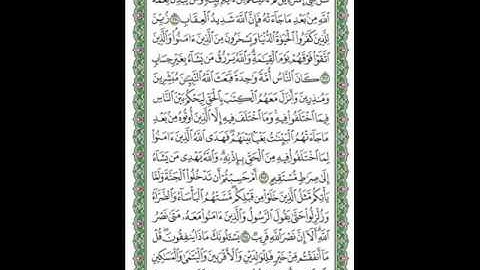 سَلْ بَنِىٓ إِسْرَٰٓءِيلَ كَمْ ءَاتَيْنَٰهُم مِّنْ ءَايَةٍۭ بَيِّنَةٍ ۗ وَمَن يُبَدِّلْ نِعْمَةَ
ٱللَّهِ مِنۢ بَعْدِ مَا جَآءَتْهُ فَإِنَّ ٱللَّهَ شَدِيدُ ٱلْعِقَابِ ٢١١ زُيِّنَ
لِلَّذِينَ كَفَرُوا۟ ٱلْحَيَوٰةُ ٱلدُّنْيَا وَيَسْخَرُونَ مِنَ ٱلَّذِينَ ءَامَنُوا۟ ۘ وَٱلَّذِينَ
ٱتَّقَوْا۟ فَوْقَهُمْ يَوْمَ ٱلْقِيَٰمَةِ ۗ وَٱللَّهُ يَرْزُقُ مَن يَشَآءُ بِغَيْرِ حِسَابٍ
٢١٢ كَانَ ٱلنَّاسُ أُمَّةً وَٰحِدَةً فَبَعَثَ ٱللَّهُ ٱلنَّبِيِّـۧنَ مُبَشِّرِينَ
وَمُنذِرِينَ وَأَنزَلَ مَعَهُمُ ٱلْكِتَٰبَ بِٱلْحَقِّ لِيَحْكُمَ بَيْنَ ٱلنَّاسِ
فِيمَا ٱخْتَلَفُوا۟ فِيهِ ۚ وَمَا ٱخْتَلَفَ فِيهِ إِلَّا ٱلَّذِينَ أُوتُوهُ مِنۢ بَعْدِ
مَا جَآءَتْهُمُ ٱلْبَيِّنَٰتُ بَغْيًۢا بَيْنَهُمْ ۖ فَهَدَى ٱللَّهُ ٱلَّذِينَ ءَامَنُوا۟
لِمَا ٱخْتَلَفُوا۟ فِيهِ مِنَ ٱلْحَقِّ بِإِذْنِهِۦ ۗ وَٱللَّهُ يَهْدِى مَن يَشَآءُ
إِلَىٰ صِرَٰطٍ مُّسْتَقِيمٍ ٢١٣ أَمْ حَسِبْتُمْ أَن تَدْخُلُوا۟ ٱلْجَنَّةَ وَلَمَّا
يَأْتِكُم مَّثَلُ ٱلَّذِينَ خَلَوْا۟ مِن قَبْلِكُم ۖ مَّسَّتْهُمُ ٱلْبَأْسَآءُ وَٱلضَّرَّآءُ
وَزُلْزِلُوا۟ حَتَّىٰ يَقُولَ ٱلرَّسُولُ وَٱلَّذِينَ ءَامَنُوا۟ مَعَهُۥ مَتَىٰ نَصْرُ
ٱللَّهِ ۗ أَلَآ إِنَّ نَصْرَ ٱللَّهِ قَرِيبٌ ٢١٤ يَسْـَٔلُونَكَ مَاذَا يُنفِقُونَ ۖ قُلْ
مَآ أَنفَقْتُم مِّنْ خَيْرٍ فَلِلْوَٰلِدَيْنِ وَٱلْأَقْرَبِينَ وَٱلْيَتَٰمَىٰ وَٱلْمَسَٰكِينِ